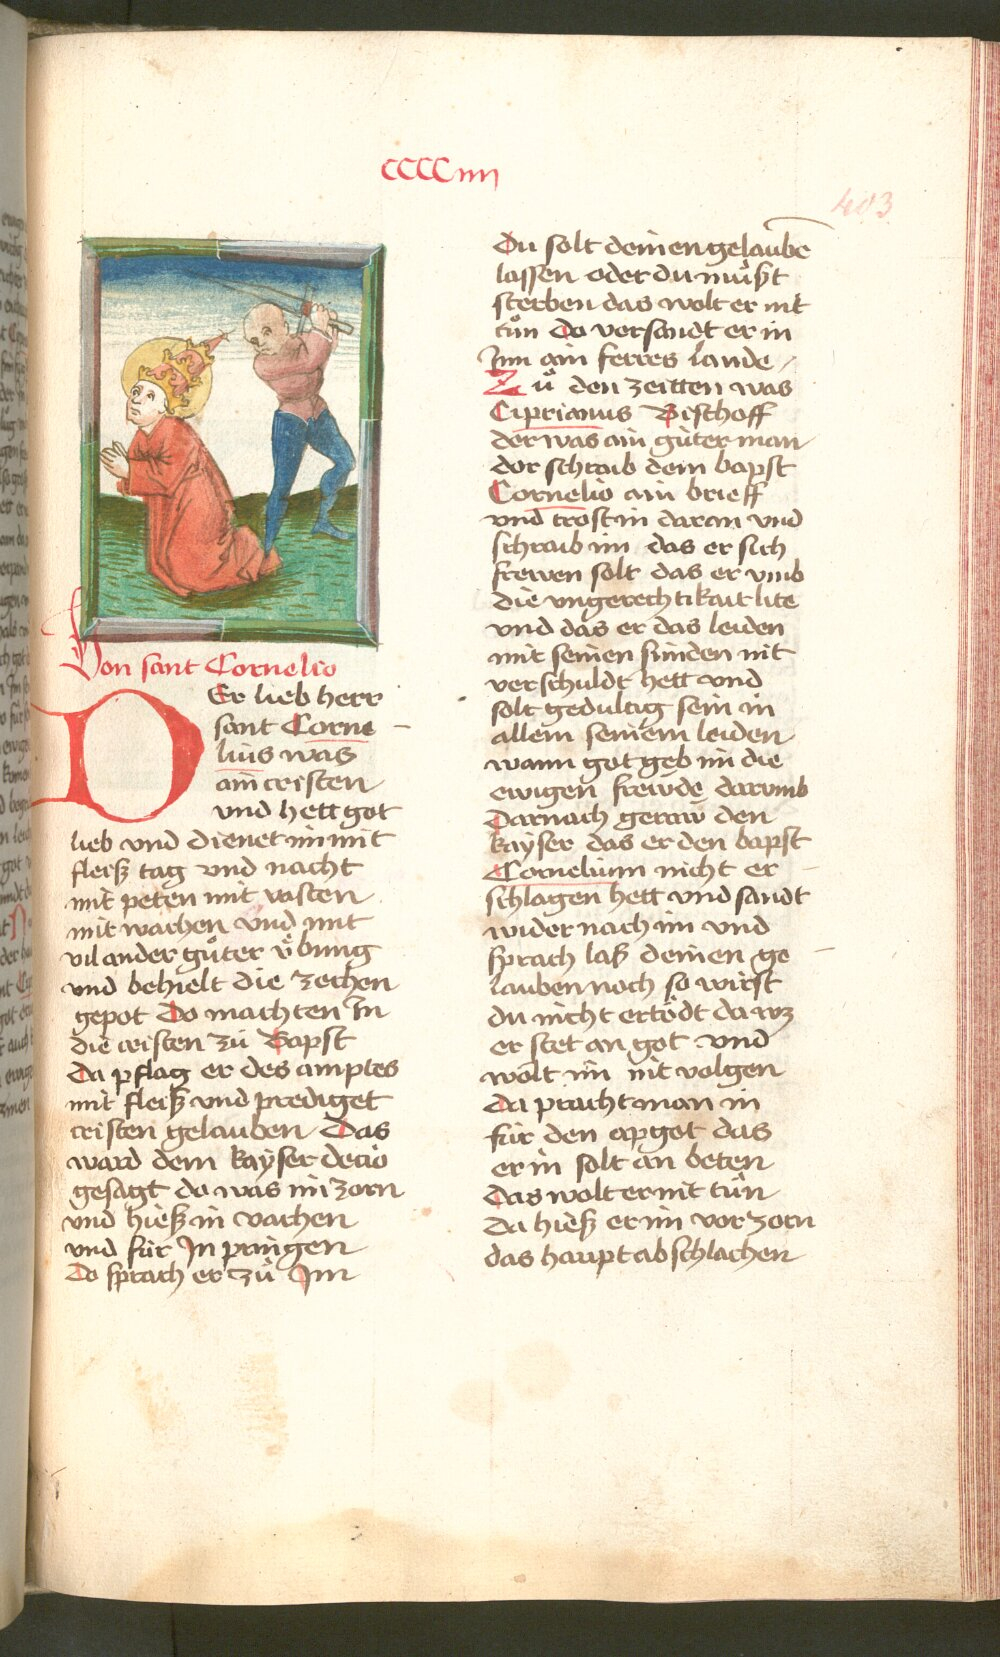 CCCCiiii
403
Von sant Cornelio
DEr lieb herr
sant Corne
lius was
ain cristen
vnd hett got
lieb vnd dienet im mit
fleiß tag vnd nacht
mit peten mit vasten
mit wachen vnd mit
vil ander gůter ůbung
vnd behielt die zechen
gepot Do machten In
die cristen zů Bapst
Da pflag er des amptes
mit fleiß vnd prediget
cristen gelauben Das
ward dem kayser decio
gesagt do was im zorn
vnd hieß in vachen
vnd für In pringen
Do sprach er zů Im
Du solt deinen gelaube
lassen oder du můst
sterben das wolt er nit
tůn Do versandt er in
Inn ain ferres lande
Zů den zeitten was
Ciprianus Bischoff
der was ain gůter man
der schraib dem bapst
Cornelio ain brieff
vnd trost in daran vnd
schraib im das er sich
frewen solt das er vmb
die vngerechtikait lite
vnd das er das leiden
mit seinen sünden nit
verschuldt hett vnd
solt gedultig sein in
allem seinem leiden
wann got geb im die
ewigen frewde darvmb
Darnach geraw den
kayser das er den bapst
Cornelium nicht er
schlagen hett vnd sandt
wider nach im vnd
sprach laß deinen ge
lauben noch so wirst
du nicht ertödt da wz
er stet an got vnd
wolt im nit volgen
Da pracht man in
für den apgot das
er in solt an beten
Das wolt er nit tůn
Da hieß er im vor zorn
das haupt ab schlachen